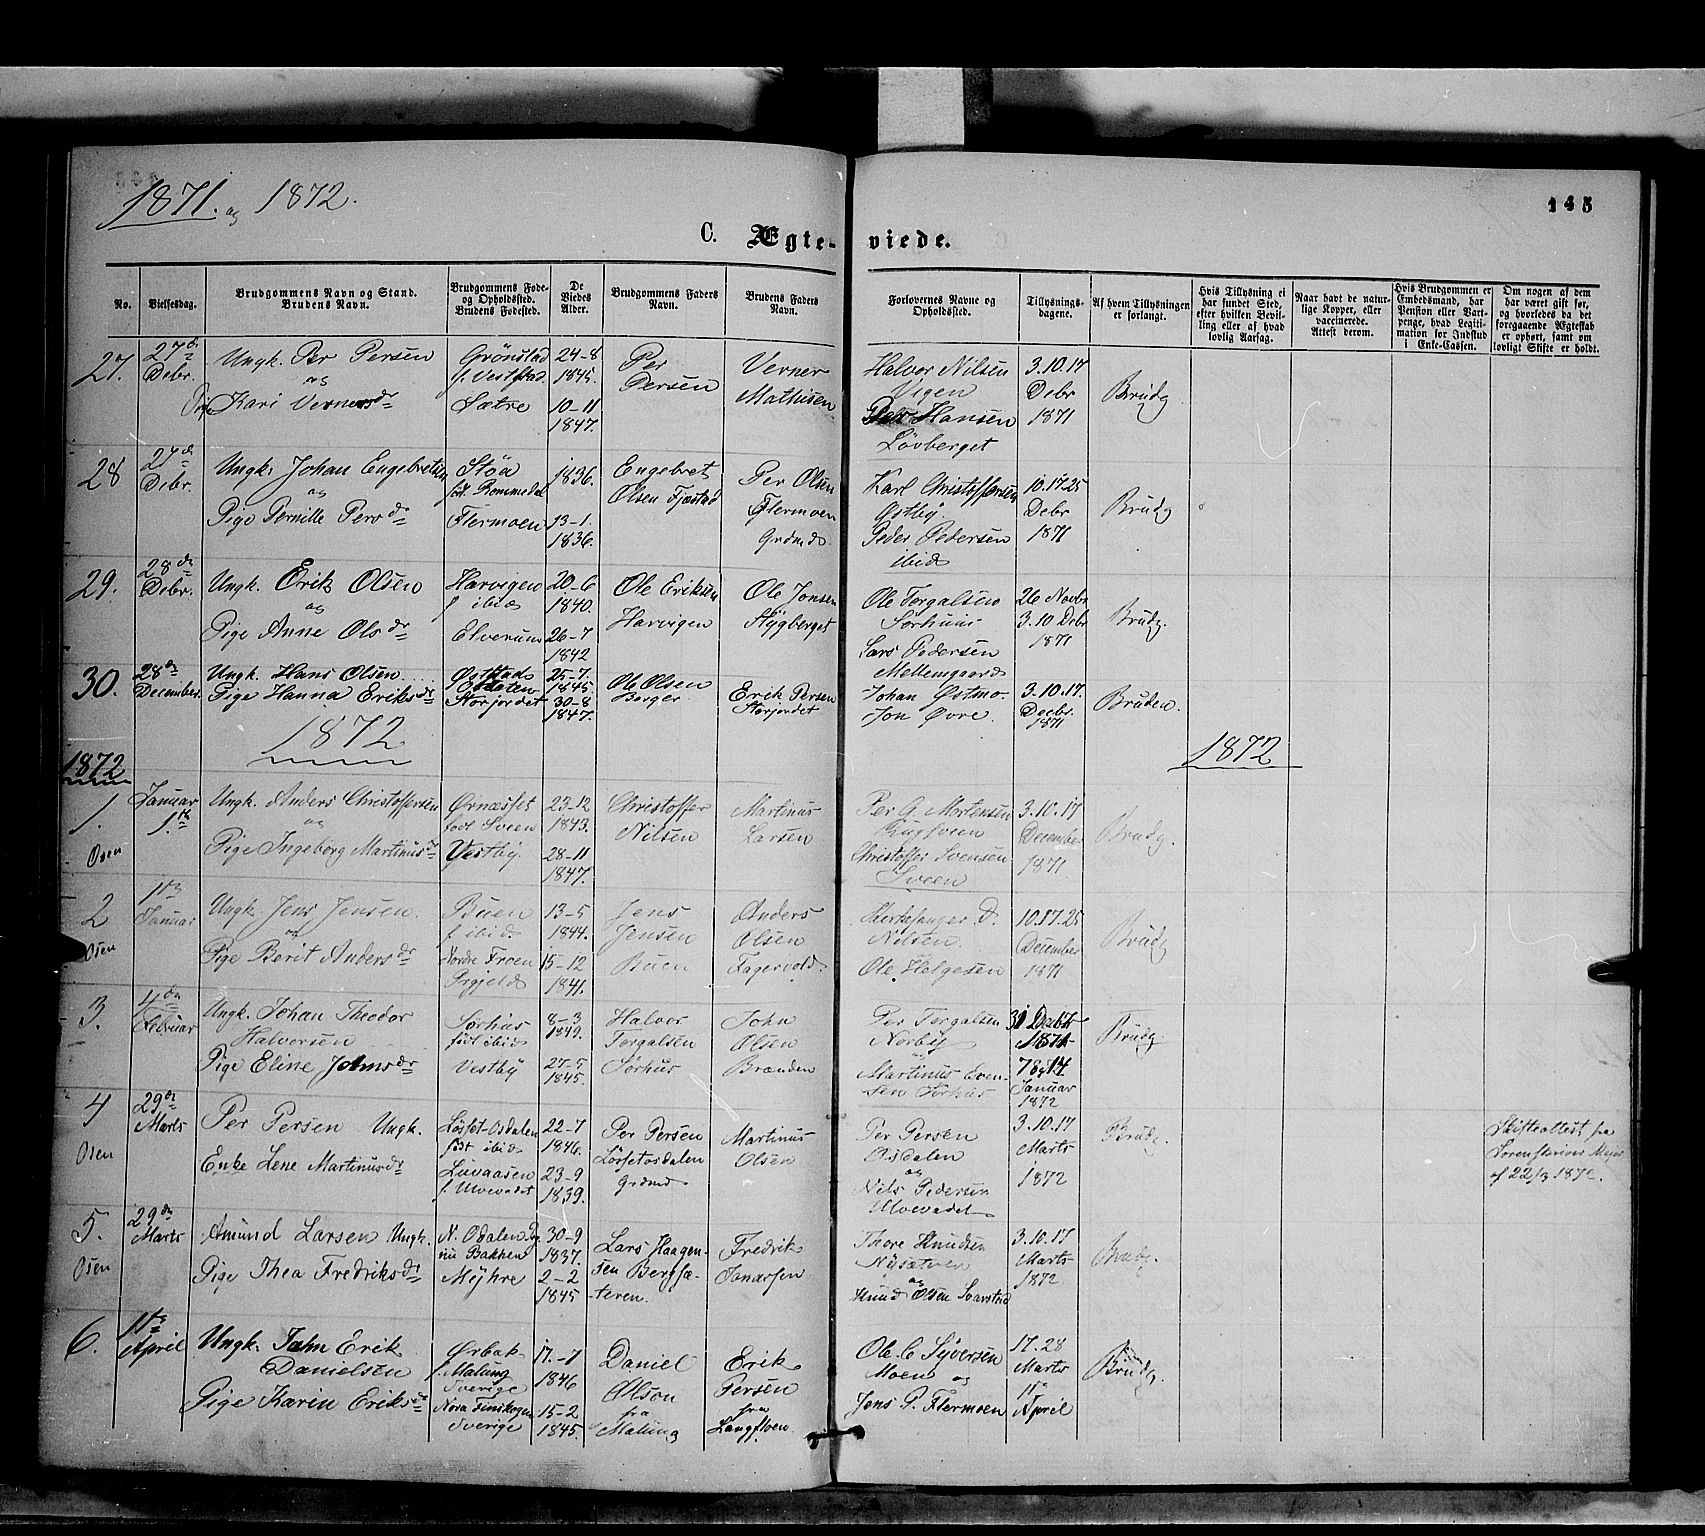 1871. og 1872.
145
C. Ægte-viede.
No.
Vielsesdag.
Brudgommens Navn og Stand.
Brudens Navn.
Brudgommens Føde-
og Opholdssted.
Brudens Fødested.
De
Viedes
Alder.
Brudgommens Faders
Navn.
Brudens Faders
Navn.
Forlovernes Navne og
Opholdssted.
Tillysnings-
dagene.
Af hvem Tillysningen
er forlangt.
Hvis Tillysning ei
har fundet Sted,
efter hvilken Bevil-
ling eller af hvad
lovlig Aarsag.
Naar havt de natur-
lige Kopper, eller
vaccinerede.
Attest derom.
Hvis Brudgommen er
Embedsmand, har
Pension eller Vart-
penge, hvad Legiti-
mation for Indskud
i Enke-Cassen.
Om nogen af dem
har været gift før,
og hvorledes da det
foregaaende Ægteskab
er ophørt, samt om
lovligt Skifte er holdt.
27. 27de Debr.
Ungk. Per Persen
og
Kari Vernersdr
Grönstad
f. Veststad
Sætre
24-8
1845.
10-11
1847.
Per
Persen
Verner
Mathisen
Halvor Nilsen
Vigen
Hansen
Lövberget
3.10.17
Debr
1871
Brudg
28 27de Debr.
Ungk. Johan Engebretsen
og
Pige Pernille Persdr
Stöa
föd. Rommedal
Flermoen
1836.
13-1.
1836.
Engebret
Olsen Fjæstad
Per Olsen
Flermoen
Grdmd.
Karl Christoffersen
Östby.
Peder Pedersen
ibid
10.17.25
Debr
1871
Brudg
29. 28de Debr.
Ungk. Erik Olsen
og
Pige Anne Olsdr
Harvigen
f ibid
Elverum
20-6
1840.
26-7
1842
Ole Eriksen
Harvigen
Ole Jonsen
Stygberget
Ole Torgalsen
Sørhuus
Lars Pedersen
Mellemgaard
26 Novbr
3.10 Debr
1871
Brudg.
30. 28de December.
Ungk. Hans Olsen
Pige Hanna Eriksdr
Øststad
Storjordet
25-7.
1845.
30-8
1847.
Ole Olsen
Berger
Erik Persen
Storjordet
Johan Østmo
Jon Øvre.
3.10.17.
Decbr.
1871
Bruden.
1872
1872
1872
1. Januar 1ste
Osen
Ungk. Anders Christoffersen
og
Pige Ingeborg Martinusdr
Ørnæsset
född Sveen
Vestby.
23-12
1843.
28-11
1847.
Christoffer
Nilsen
Martinus
Larsen
Per G. Mortensen
Rugsveen
Christoffer Svensen
Sveen
3.10.17
December
1871.
Brudg.
2 1ste Januar
Osen
Ungk. Jens Jensen.
og
Pige Berit Andersdr
Buen
f. ibid.
Nordre Froen
13-5
1844.
15-12
1841.
Jens
Jensen
Buen
Anders
Olsen
Fagervold
Kirkesanger D.
Nilsen.
Ole Helgesen
10.17.25
December
1871
Brudg
3. 4de Februar
Ungk. Johan Theodor
Halvorsen
Pige Eline Johnsdr
Sörhus
född ibid
Vestby
8-3
1849.
27-5
1845.
Halvor
Torgalsen
Sörhus
John
Olsen
Brænden
Per Torgalsen
Norby
Martinus Even-
sen Sörhus
31 Decbr
1871
7 & 14
Januar
1872
Brudg.
4 29de Marts
Osen
Per Persen Ungk.
Enke Lene Martinusdr
Lösset-Osdalen
född ibid.
Luvaasen
f. Ulvevadet
22-7
1846.
23-9
1839.
Per Persen
Lössetosdalen
Grdmd
Martinus
Olsen
Per Persen
Osdalen
og
Nils Pedersen
Ulvevadet
3.10.17
Marts
1872
Brudg.
Skifteattest fra
Sorenskriver
af 22/3 1872.
5. 29de Marts
Osen
Amund Larsen Ungk.
Pige Thea Fredriksdr
N. Odalen
nu Bakken
Myhre
30-9
1837.
2-2
1845
Lars Haagen-
sen Bergsæ-
teren.
Fredrik
Janarsen
Thore Knudsen
Nysæteren
og
Knud Olsen
3.10.17
Marts
1872
Brudg.
6. 1ste April
Ungk. Jahn Erik
Danielsen
Pige Karin Eriksdr
Ørbak
f. Malung
Sverige
Nora Finskogen
Sverige
17.-7
1846
15-2
1845.
Daniel
Olson
fra
Malung
Erik
Persen
fra
Langfloen
Ole C Syversen
Moen og
Jens P. Flermoen
17.28
Marts
1ste
April
Brudg.